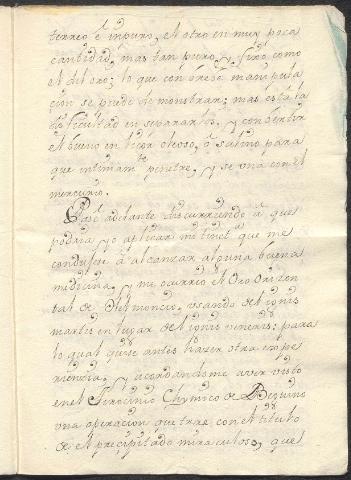 terreo è inpuro, el otro en muy poca
cantidad, mas tan puro, y fixo como
el del oro; lo que con breve manipula
cion se puede demonstrar; mas está la
dificultad en separarlos, y convertir
el bueno en licor oleoso, ò salino para
que intimam.te penetre, y se una con el
mercurio.
Pasè adelante discurriendo à que
podria yo aplicar mi tinct.ra que me
conduxese à alcanzar alguna buena
medicina, y me ocurriò el Oro Orizon
tal de Helmoncio, usando del ignis
martis en lugar del ignis veneris: para
lo qual quise antes hazer otra expe
riencia, y acordandome aver visto
en el Tirocinio Chymico de Beguino
una operacion que trae con el titulo
de el precipitado miraculoso, que l